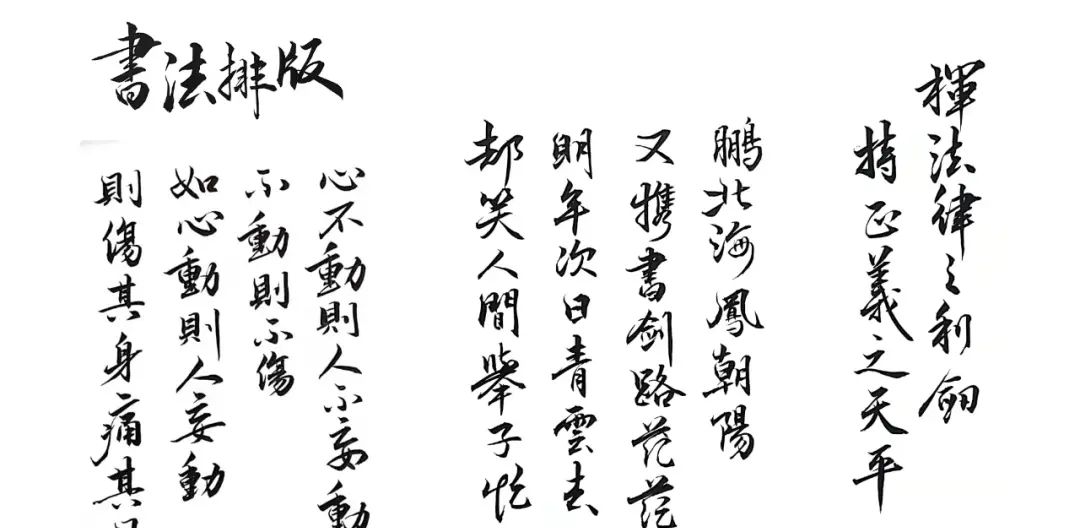 書法排版
揮法律之利劍
持正義之天平
鵬北海鳳朝陽
又攜書劍路茫茫
明年次日青雲去
却笑人間舉子忙
心不動則人不妄動
不動則不傷
如心動則人妄動
則傷其身痛其